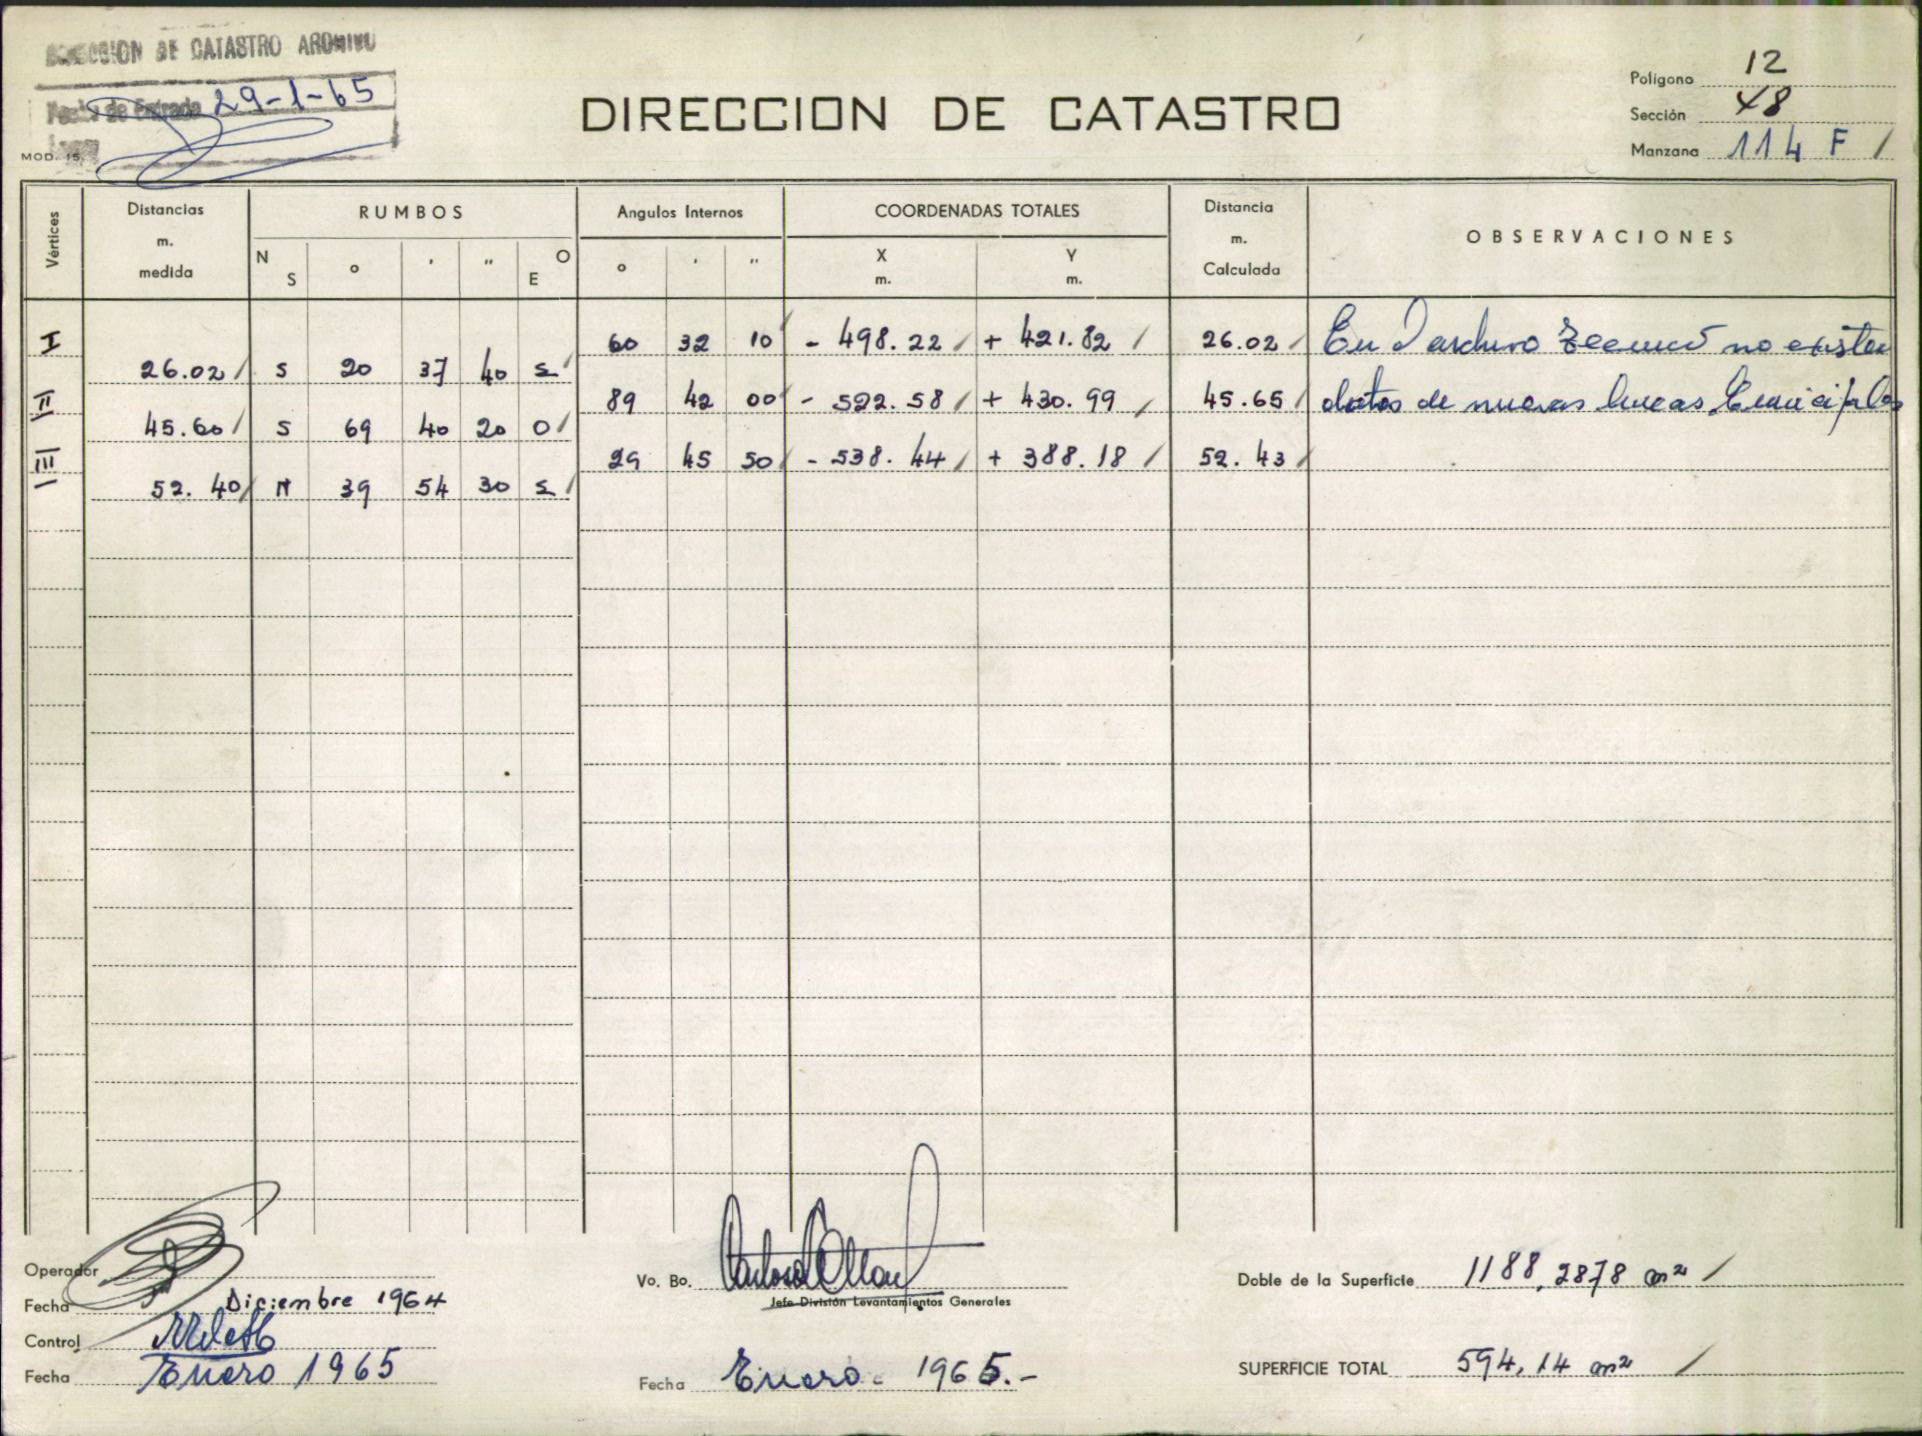 DIRECCION DE CATASTRO ARCHIVO
Fecha de Entrada 29-1-65
MOD. 15.
DIRECCION DE CATASTRO
Polígono 12
Sección 48
Manzana 114 F /
Vértices
Distancias m. medida
RUMBOS
N S ° ' " O E
Angulos Internos
° ' "
COORDENADAS TOTALES
X m. Y m.
Distancia m. Calculada
OBSERVACIONES
I 60 32 10 / - 498.22 / + 421.82 / 26.02 / En archivo no existen
26.02 / S 20 37 40 E /
II 89 42 00 / - 522.58 / + 430.99 / 45.65 / datos de nuevas lineas
45.60 / S 69 40 20 O /
III 29 45 50 / - 538.44 / + 388.18 / 52.43 /
52.40 / N 39 54 30 E /
Operador
Fecha Diciembre 1964
Control
Fecha Enero 1965
Vo. Bo.
Jefe División Levantamientos Generales
Fecha Enero - 1965.-
Doble de la Superficie 1188,2878 m² /
SUPERFICIE TOTAL 594,14 m² /